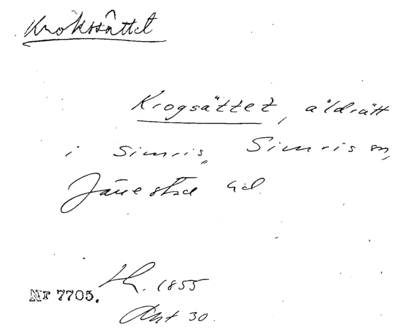 Kroksättet
Krogsättet, åldrätt
i Simris, Simris sn,
Järrestad hd.
1855
Nr 7705.
Akt 30.